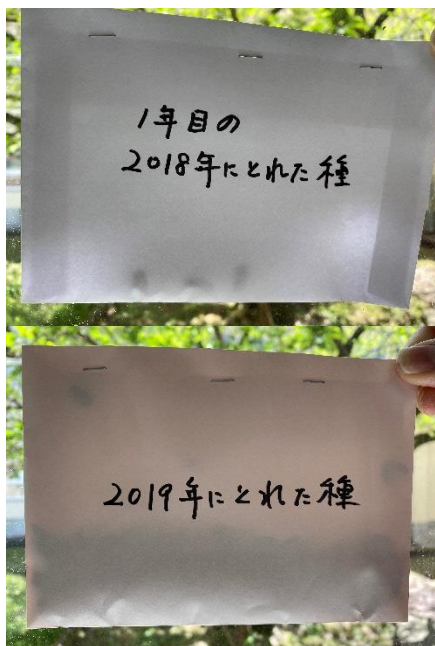 1年目の
2018年にとれた種
2019年にとれた種